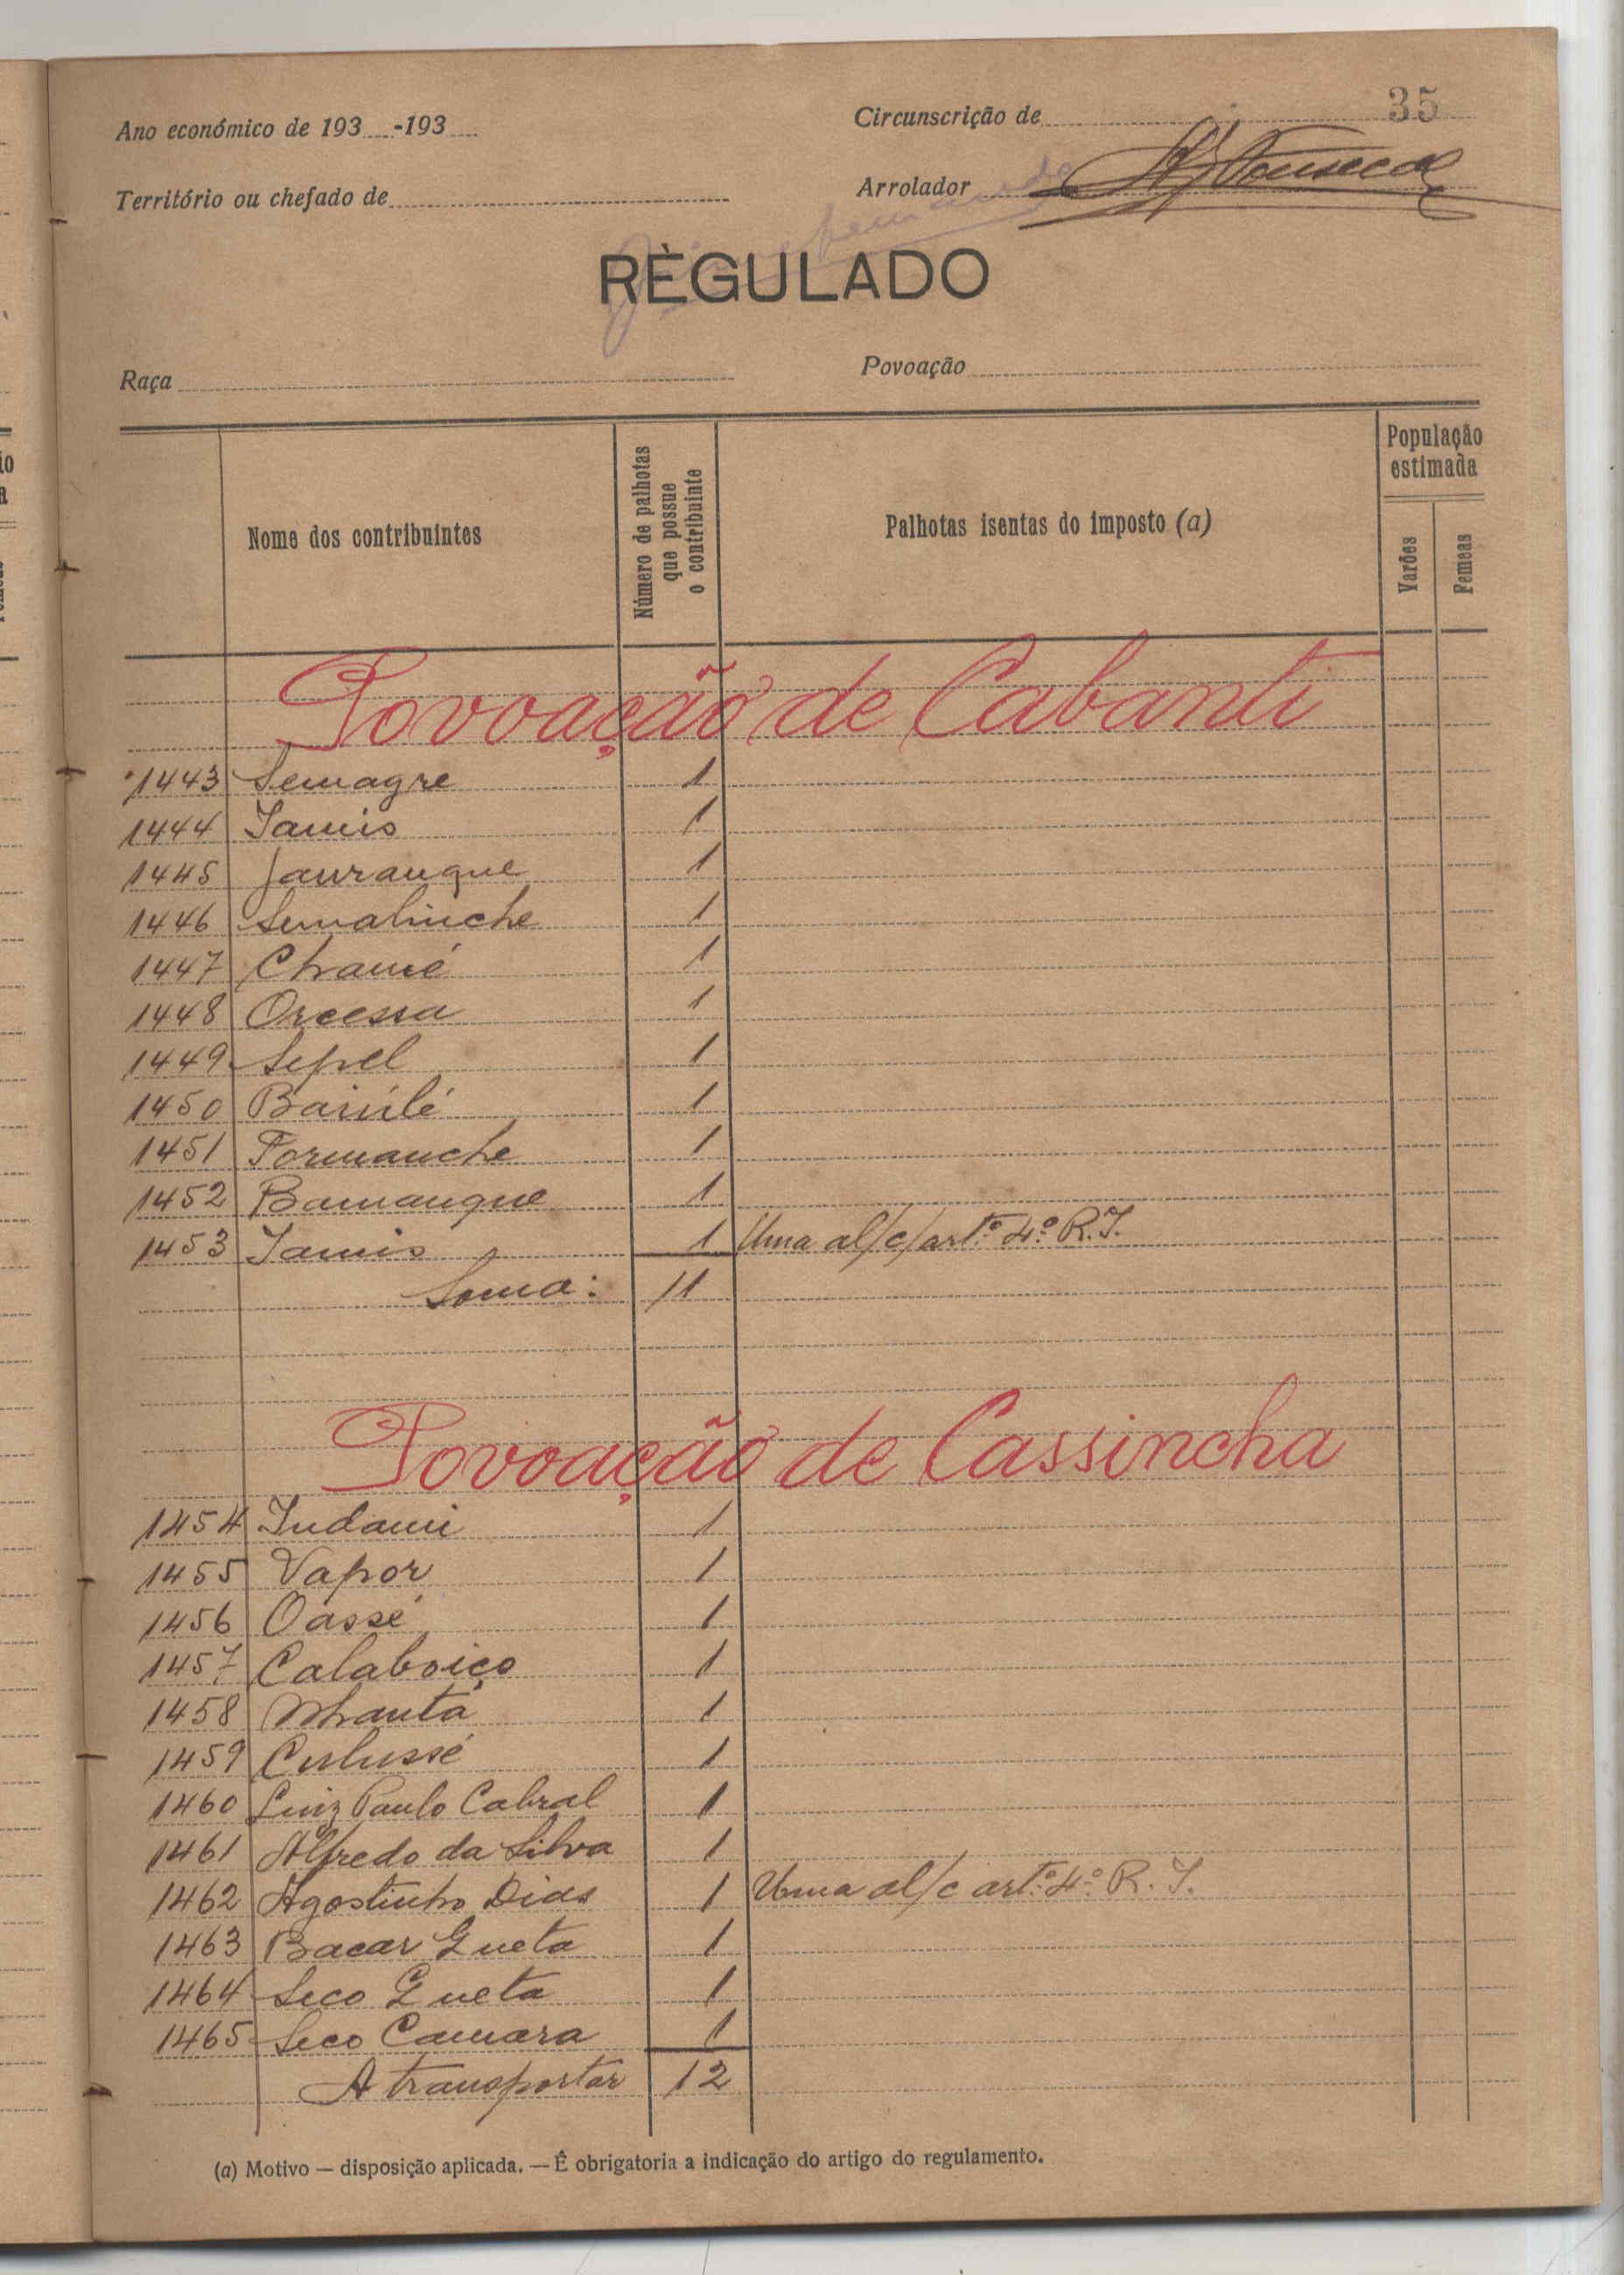 35
Ano económico de 193 -193
Circunscrição de
Território ou chefado de
Arrolador
RÈGULADO
Raça
Povoação
Nome dos contribuintes
Número de palhotas que possue o contribuinte
Palhotas isentas do imposto (a)
População estimada
Varões
Femeas
Povoação de Cabanti
1443 Semagre 1
1444 Iamis 1
1445 Jauranque 1
1446 1
1447 Chamé 1
1448 Orcessa 1
1449 Sepel 1
1450 Bariúlé 1
1451 Formanche 1
1452 Bamanque 1
1453 Iamis 1 Uma al/c/artº 4º R. I.
Soma: 11
Povoação de Cassincha
1454 Indami 1
1455 Vapor 1
1456 Oassé 1
1457 Calaboiço 1
1458 Nhanta 1
1459 Culussé 1
1460 Luiz Paulo Cabral 1
1461 Alfredo da Silva 1
1462 Agostinho Dias 1 Uma al/c artº 4º R. I.
1463 Bacar Gueta 1
1464 Seco Gueta 1
1465 Seco Camara 1
A transportar 12
(a) Motivo — disposição aplicada. — É obrigatoria a indicação do artigo do regulamento.